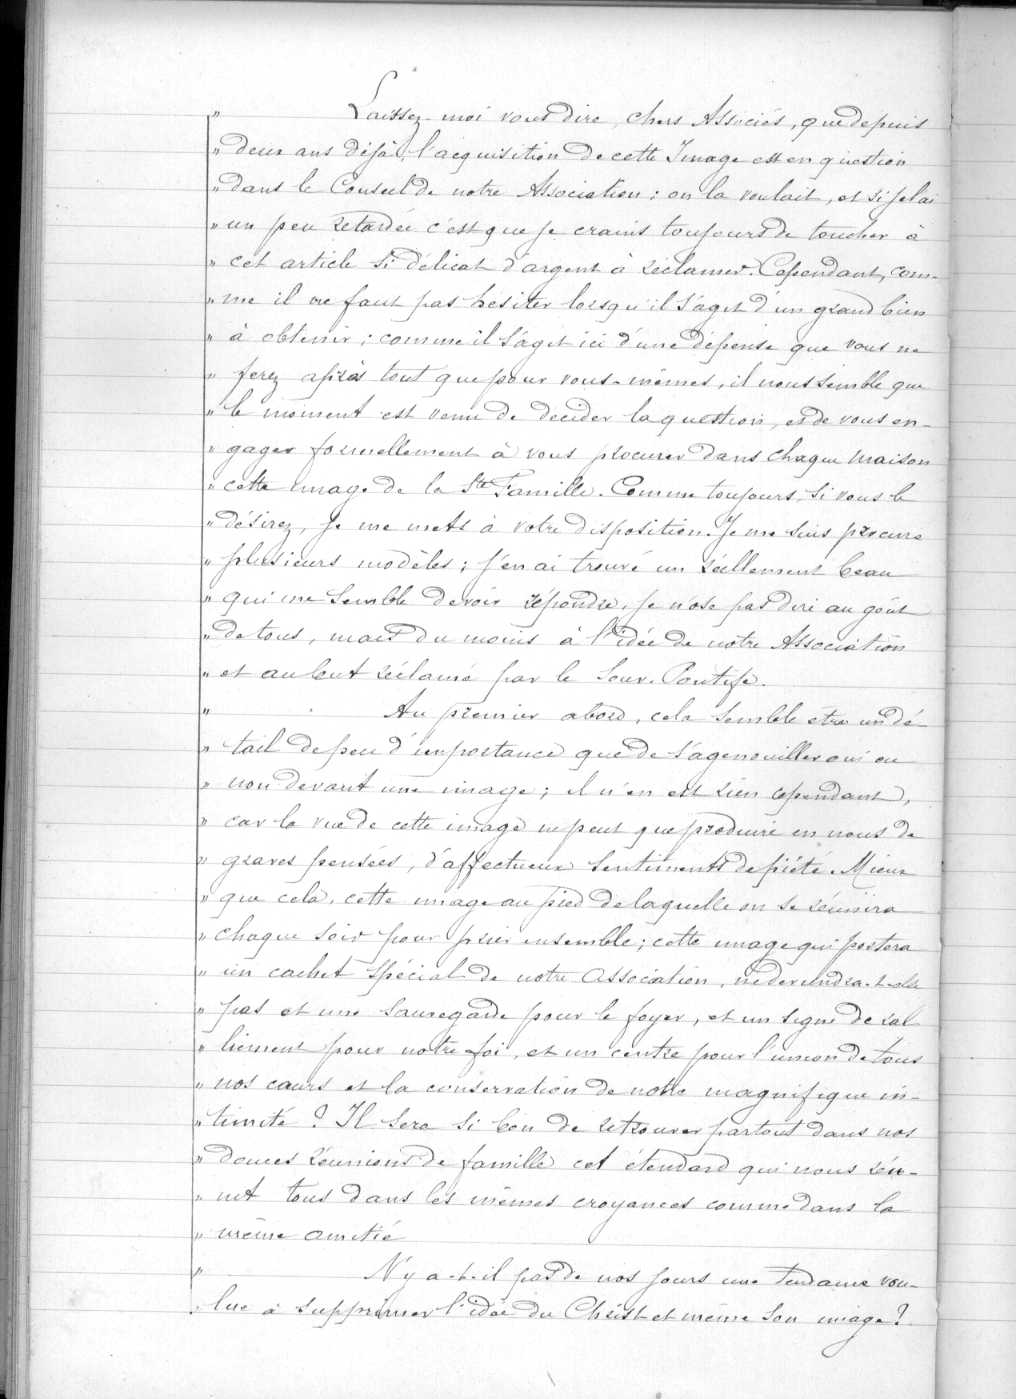 " Laissez-moi vous dire, chers Associés, que depuis
" deux ans déjà, l'acquisition de cette Image est en question
" dans le Conseil de notre Association : on la voulait, et si je l'ai
" un peu retardée c'est que je crains toujours de toucher à
" cet article si délicat d'argent à réclamer. Cependant, com-
" me il ne faut pas hésiter lorsqu'il s'agit d'un grand bien
" à obtenir ; comme il s'agit ici d'une dépense que vous ne
" ferez après tout que pour vous-mêmes, il nous semble que
" le moment est venu de decider la question, et de vous en-
" gager formellement à vous procurer dans chaque maison
" cette image de la Ste Famille. Comme toujours, si vous le
" désirez, je me mets à votre disposition. Je me suis procuré
" plusieurs modèles ; j'en ai trouvé un réellement beau
" qui me semble devoir répondre, je n'ose pas dire au goût
" de tous, mais du moins à l'idée de notre Association
" et au but réclamé par le Souv. Pontife.
" Au premier abord, cela semble etre un dé-
" tail de peu d'importance que de s'agenouiller oui ou
" non devant une image ; il n'en est rien cependant,
" car la vue de cette image ne peut que produire en nous de
" graves pensées, d'affectueux sentiments de piété. Mieux
" que cela, cette image au pied de laquelle on se réunira
" chaque soir pour prier ensemble ; cette image qui portera
" un cachet spécial de notre Association, ne deviendra-t-elle
" pas et une sauvegarde pour le foyer, et un signe de ral-
" liement pour notre foi, et un centre pour l'union de tous
" nos cœurs et la conservation de notre magnifique in-
" timité ? Il sera si bon de retrouver partout dans nos
" douces réunions de famille cet étendard qui nous réu-
" nit tous dans les mêmes croyances comme dans la
" même amitié
" N'y a-t-il pas de nos jours une tendance vou-
" lue à supprimer l'idée du Christ et même son image ?